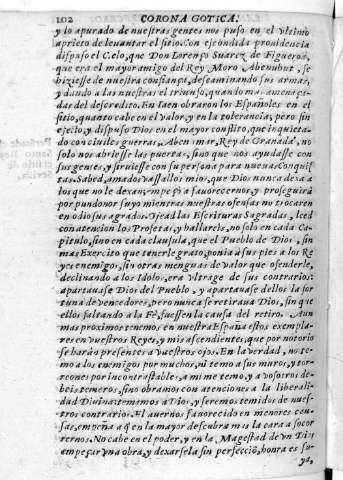 102 CORONA GOTICA.
y lo apurado de nuestras gentes nos puso en el vltimo
aprieto de leuantar el sitio. Con escondida prouidencia
dispuso el Cielo, que Don Lorenço Suarez de Figueroa,
que era el mayor amigo del Rey Moro, Abenubut, se
hiziesse de nuestra confiança, desencaminando sus armas,
y dando a las nuestras el triunfo, quando mas amenaça-
das del descredito. En Iaen obraron los Españoles en el
sitio, quanto cabe en el valor, y en la tolerancia, pero sin
efeto, y dispuso Dios en el mayor conflito, que inquieta-
do con ciuiles guerras, Abenamar, Rey de Granada, no
solo nos abriesse las puertas, sino que nos ayudasse con
sus gentes, y siruiesse con su persona para nuestras Conquis-
tas. Sabed, amados vassallos mios, que Dios nunca dexa a
los que no le dexan; empeçò a fauorecernos, y proseguirà
por pundonor suyo mientras nuestras ofensas no trocaren
en odio sus agrados. Ojead las Escrituras Sagradas, leed
con atencion los Profetas, y hallareis, no solo en cada Ca-
pitulo, sino en cada clausula, que el Pueblo de Dios, sin
mas Exercito que tenerle grato, ponia à sus pies a los Re-
yes enemigos, sin otras menguas de valor que ofenderle,
declinando a los Idolos, era vltrage de sus contrarios:
apartauase Dios del Pueblo, y apartauase dellos la for
tuna de vencedores, pero nunca se retiraua Dios, sin que
ellos faltando a la Fè, fuessen la causa del retiro. Aun
mas proximos tenemos en nuestra España estos exempla-
res en vuestros Reyes, y mis ascendientes, que por notorio
se haràn presentes a vuestros ojos. En la verdad, no te-
mo a los enemigos por muchos, ni temo a sus muros, y tor-
reones por incontrastable; a mi me temo, y a vosotros de-
beis temeros, sino obramos con atenciones a la liberali-
dad Diuina: temamos a Dios, y seremos temidos de nues-
tros contrarios. El auernos fauorecido en menores cau-
sas, empeña a que en la mayor descubra mas la cara a socor
rernos. No cabe en el poder, y en la Magestad de vn Dios
empeçar vna obra, y dexarsela sin perfecciò, honra es su-
ya,